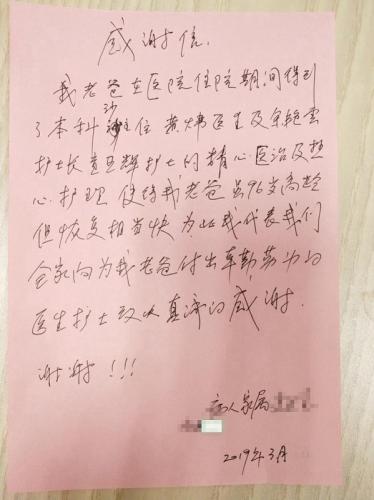 感谢信.
我老爸在医院住院期间得到
了本科沙主任 黄炜医生及金艳雲
护士长 董亚辉护士的精心医治及热
心护理, 使得我老爸虽96岁高龄
但恢复相当快 为此我代表我们
全家向为我老爸付出辛勤劳力的
医生护士致以真济的感谢.
谢谢!!!
病人家属
2019年3月